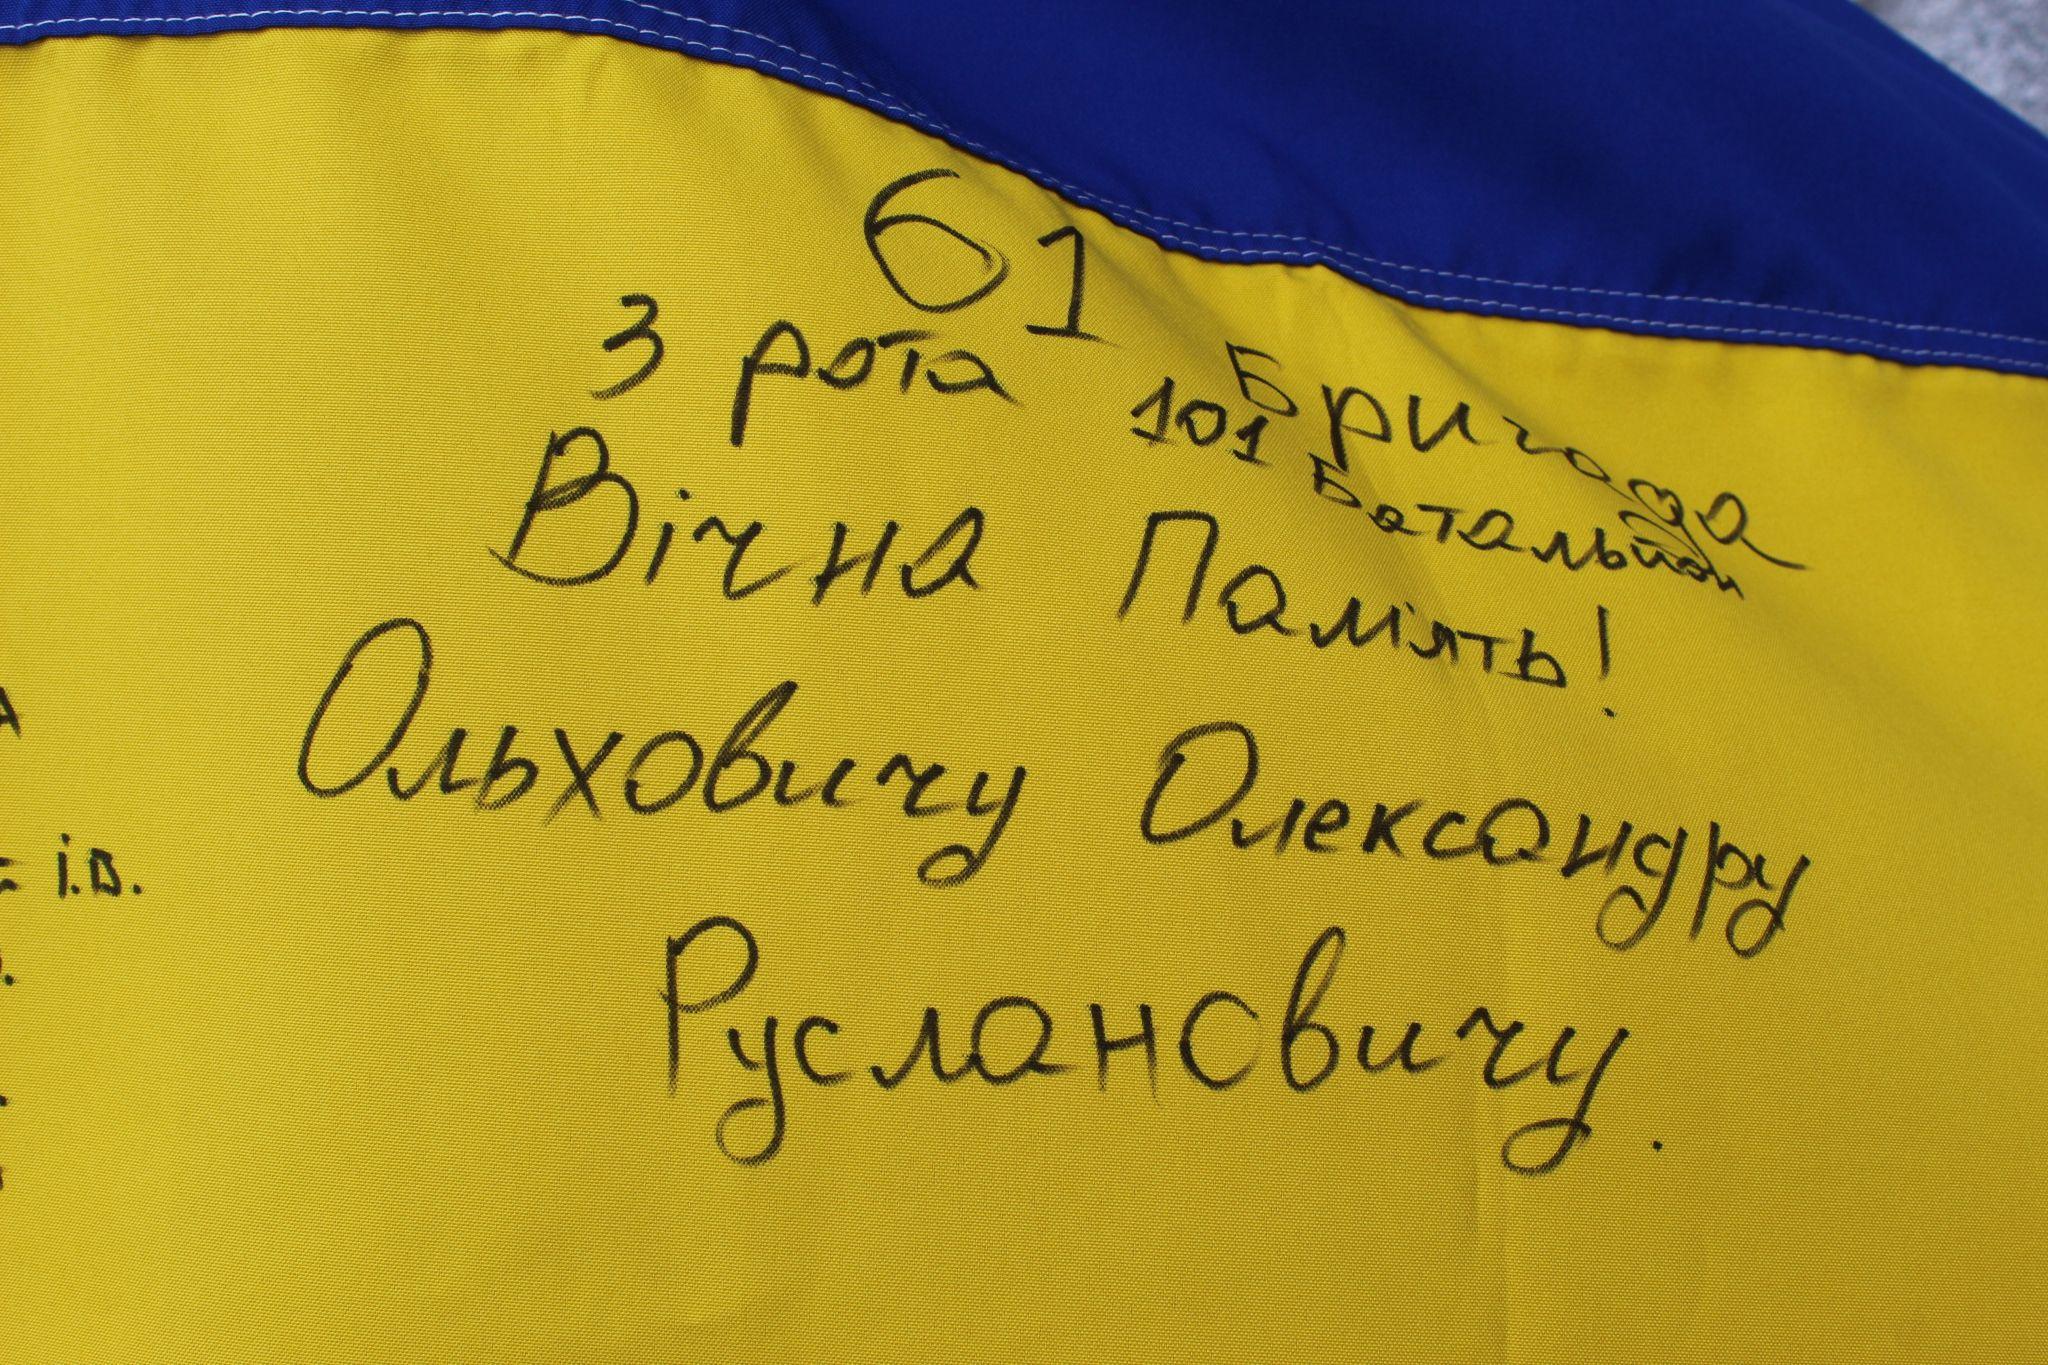 61 Бригада
3 рота 101 Батальйон
Вічна Пам'ять!
Ольховичу Олександру
Руслановичу.
і.в.